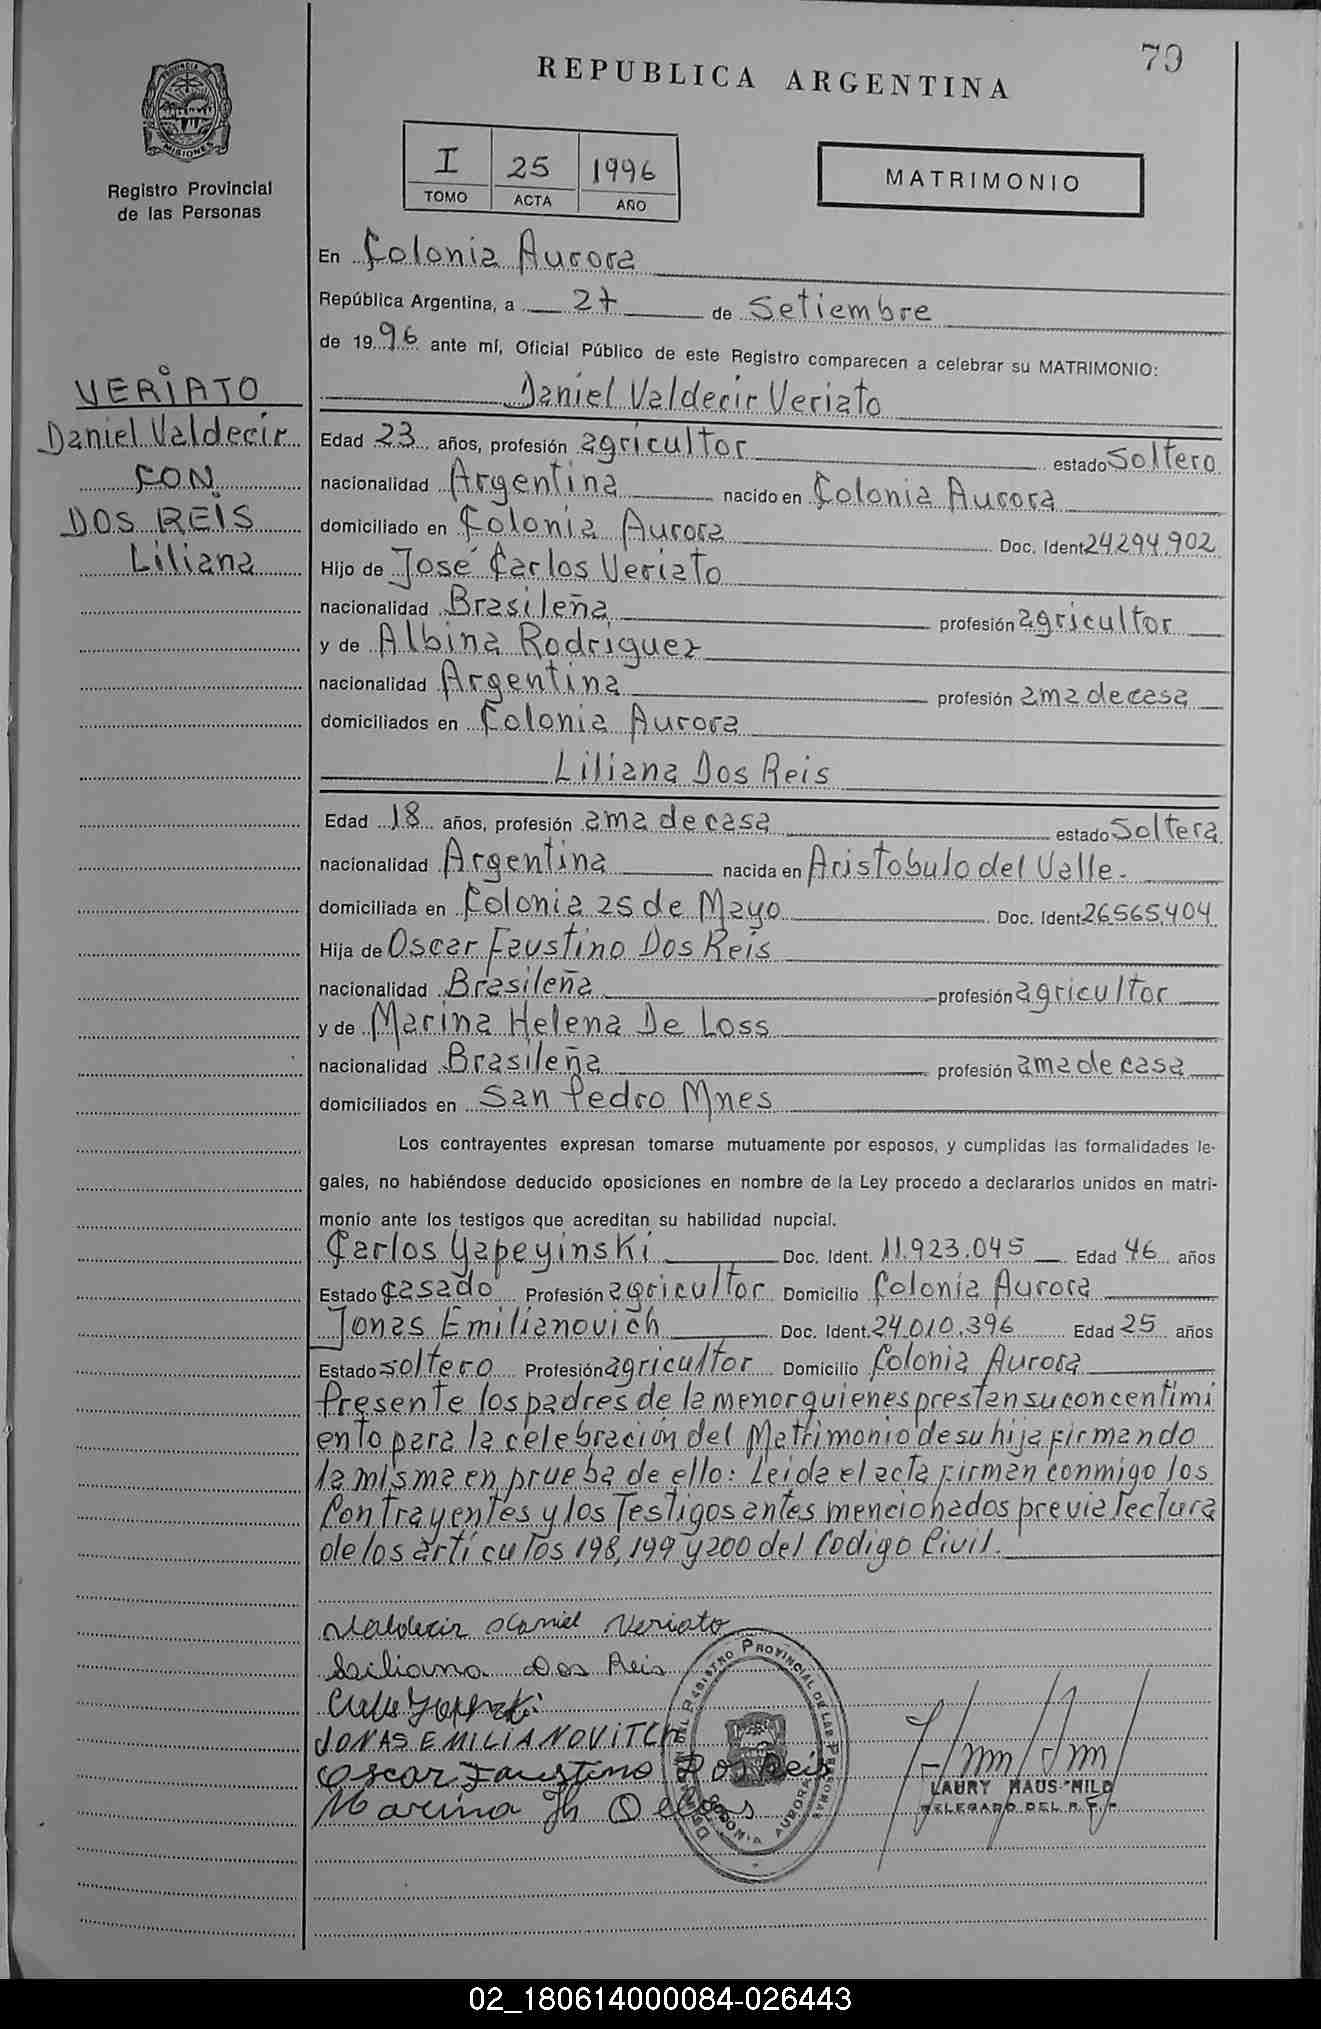 79
REPUBLICA ARGENTINA
PROVINCIA DE MISIONES
Registro Provincial
de las Personas
I 25 1996
TOMO ACTA AÑO
MATRIMONIO
En Colonia Aurora
República Argentina, a 27 de Setiembre
de 1996 ante mí, Oficial Público de este Registro comparecen a celebrar su MATRIMONIO:
VERIATO
Daniel Valdecir
CON
DOS REIS
Liliana
Daniel Valdecir Veriato
Edad 23 años, profesión agricultor estado soltero
nacionalidad Argentina nacido en Colonia Aurora
domiciliado en Colonia Aurora Doc. Ident 24294.902
Hijo de José Carlos Veriato
nacionalidad Brasileña profesión agricultor
y de Albina Rodriguez
nacionalidad Argentina profesión ama de casa
domiciliados en Colonia Aurora
Liliana Dos Reis
Edad 18 años, profesión ama de casa estado soltera
nacionalidad Argentina nacida en Aristobulo del Valle.
domiciliada en Colonia 25 de Mayo Doc. Ident 26565.404
Hija de Oscar Faustino Dos Reis
nacionalidad Brasileña profesión agricultor
y de Marina Helena De Loss
nacionalidad Brasileña profesión ama de casa
domiciliados en San Pedro Mnes
Los contrayentes expresan tomarse mutuamente por esposos, y cumplidas las formalidades le-
gales, no habiéndose deducido oposiciones en nombre de la Ley procedo a declararlos unidos en matri-
monio ante los testigos que acreditan su habilidad nupcial.
Carlos Yapeyinski Doc. Ident. 11.923.045 Edad 46 años
Estado casado Profesión agricultor Domicilio Colonia Aurora
Jonas Emilianovich Doc. Ident. 24.010.396 Edad 25 años
Estado soltero Profesión agricultor Domicilio Colonia Aurora
Presente los padres de la menor quienes prestan su concentimi
ento para la celebración del Matrimonio de su hija firmando
la misma en prueba de ello: Leida el acta firman conmigo los
Contrayentes y los Testigos antes mencionados previa lectura
de los artículos 198, 199 y 200 del Codigo Civil.
Valdecir Daniel Veriato
Liliana Dos Reis
JONAS EMILIANOVITCH
Oscar Faustino Dos Reis
Marina H De Loss
DEL REGISTRO PROVINCIAL DE LAS PERSONAS
COLONIA AURORA
LAURY HAUS MILD
DELEGADO DEL R. P. P.
02_180614000084-026443